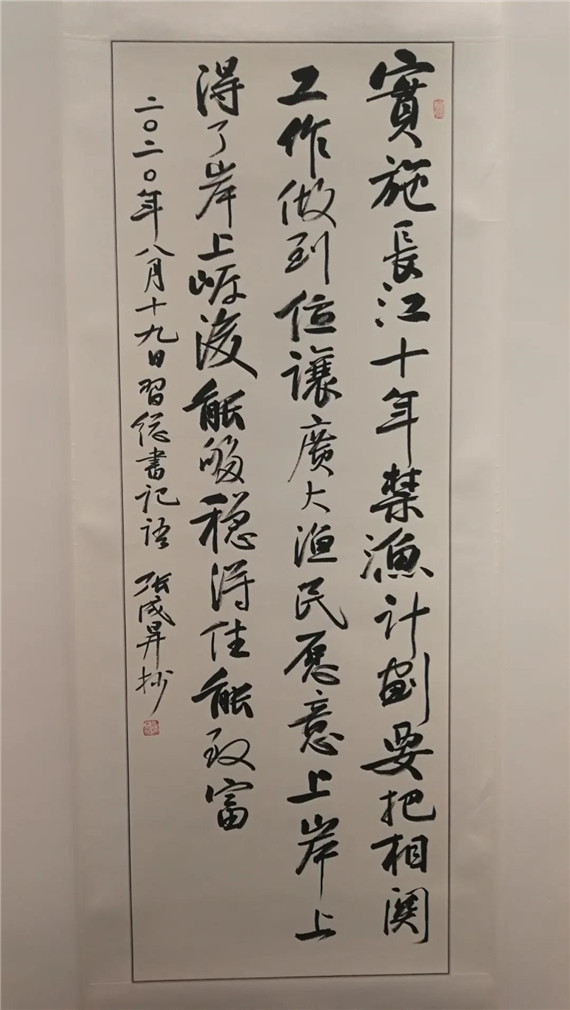 實施長江十年禁漁计劃要把相関
工作做到位讓廣大渔民愿意上岸上
得了岸上岸後能够稳得住能致富
二〇二〇年八月十九日習总書记语 张成昇抄